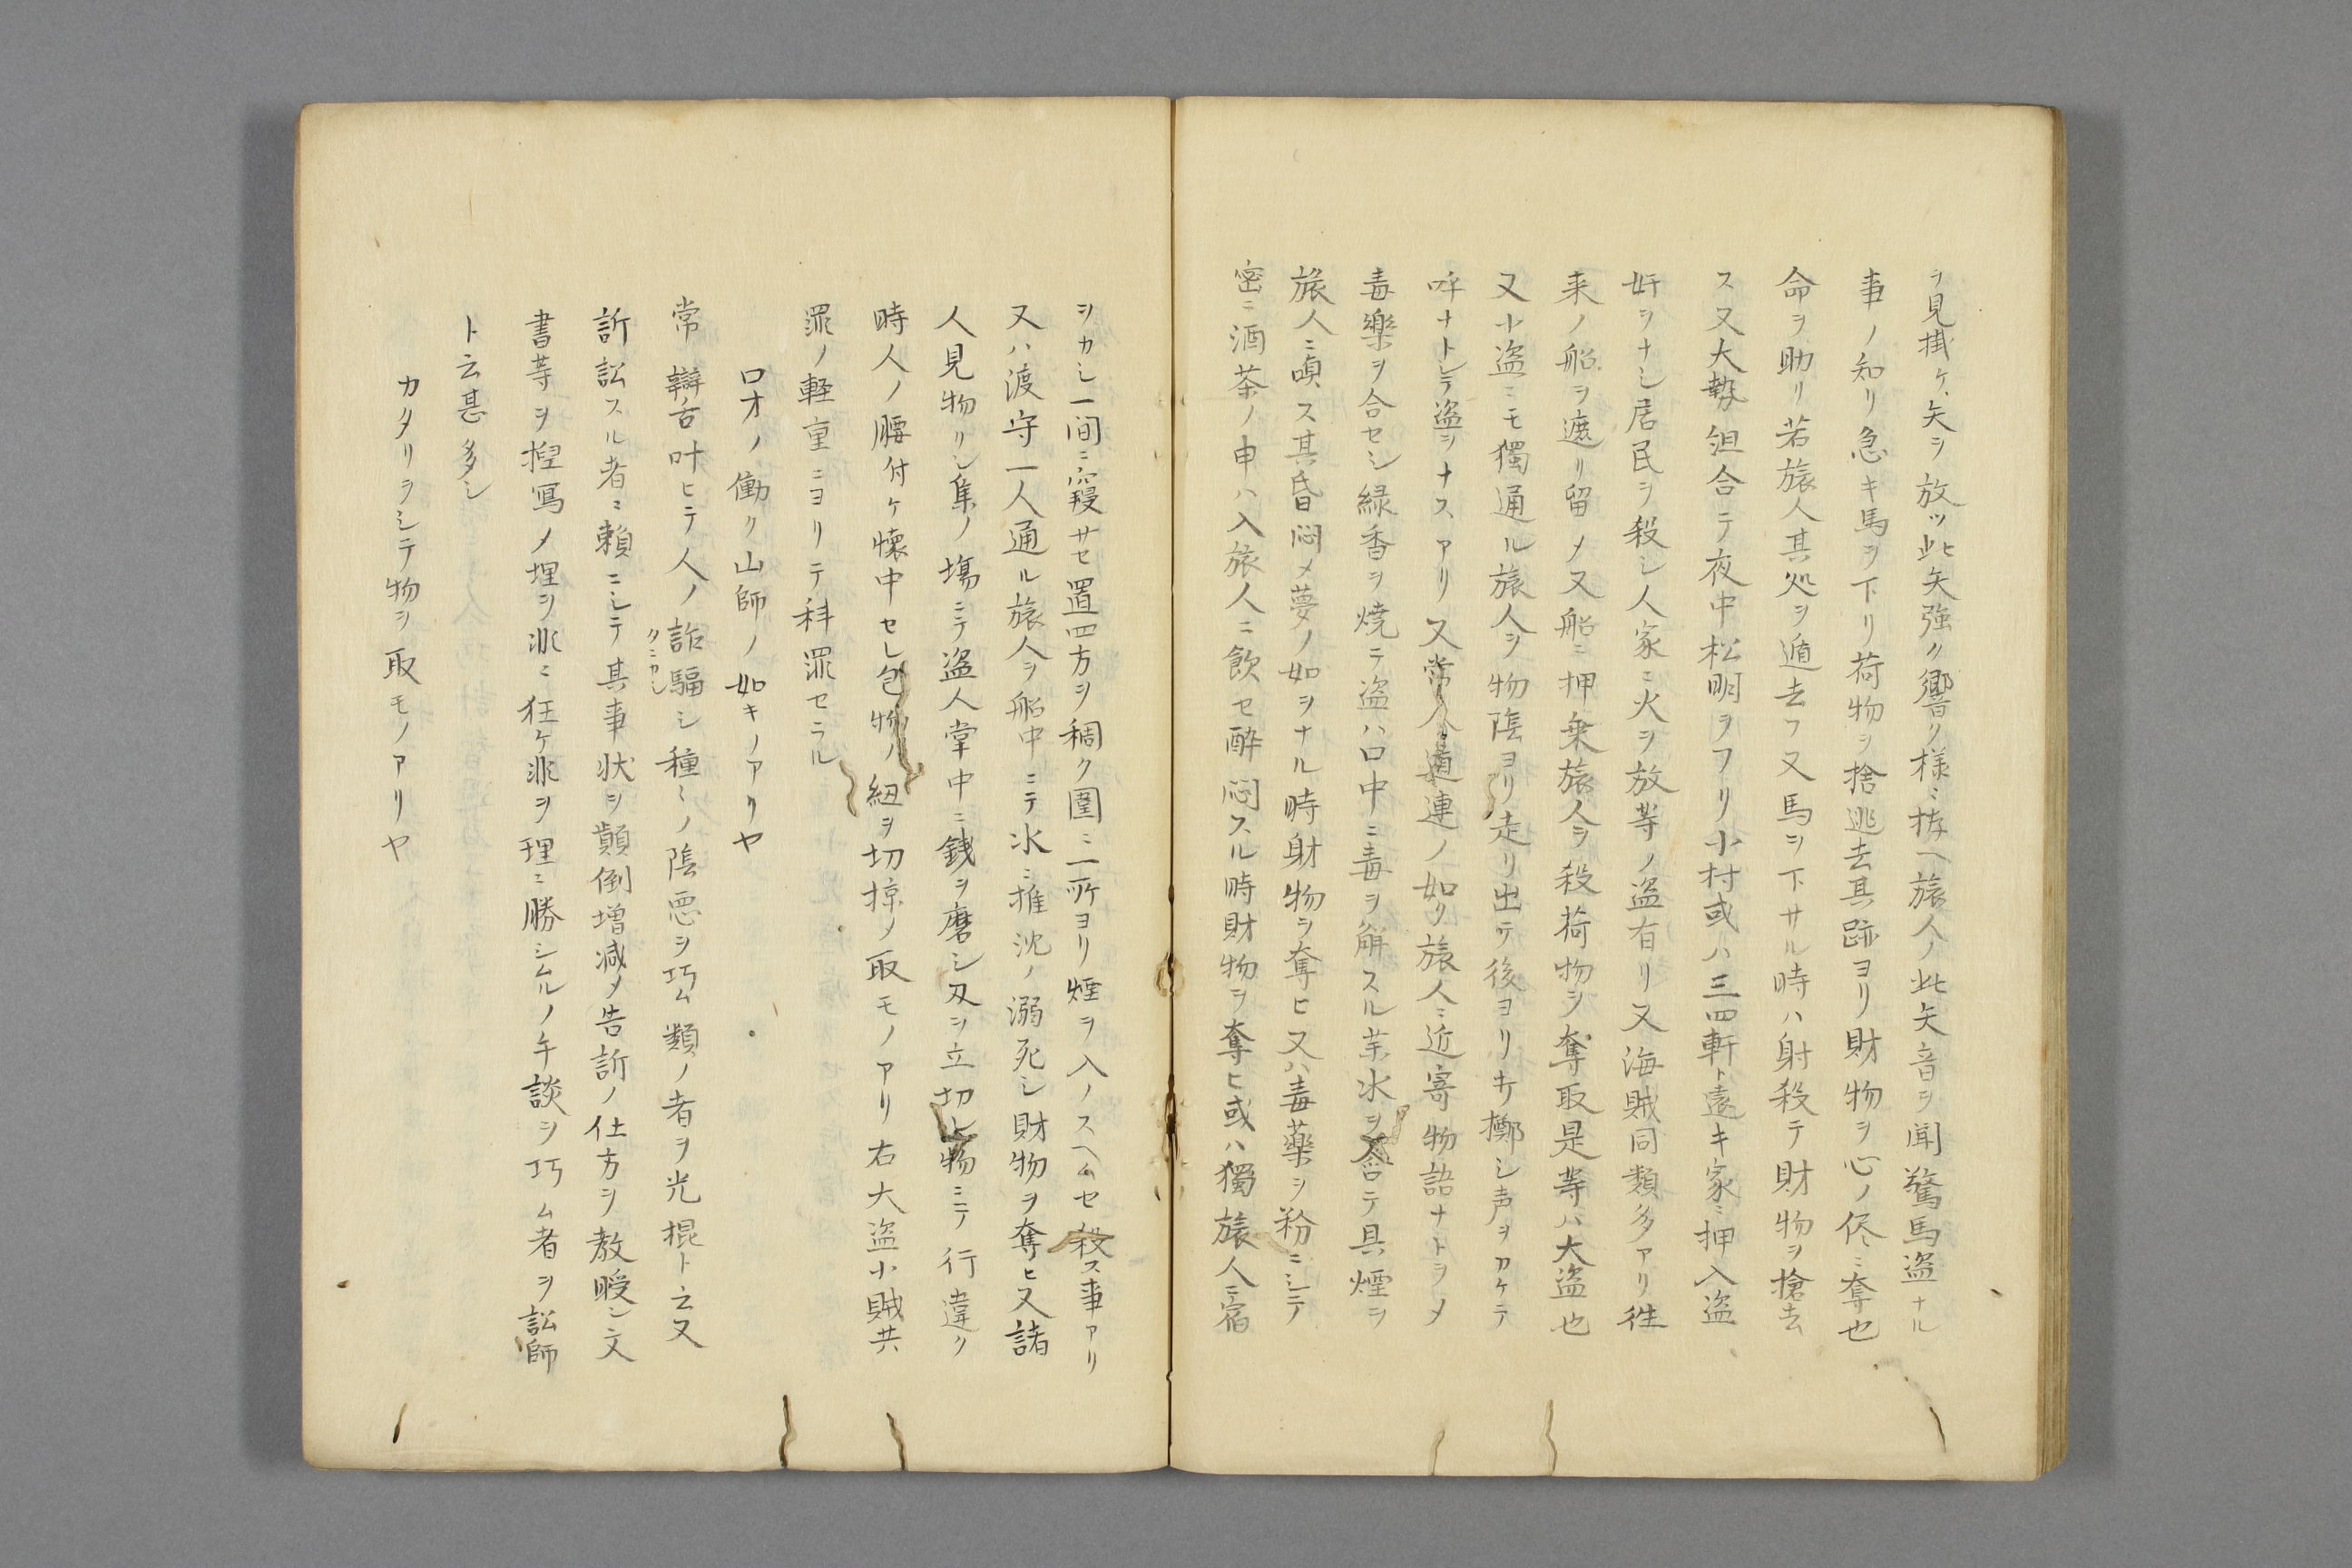 ヲ見掛ケ矢ヲ放ツ此矢強ク響ク様ニ拵ヘ旅人ノ此矢音ヲ聞驚馬盗ナル
事ノ知リ急キ馬ヲ下リ荷物ヲ捨逃去其跡ヨリ財物ヲ心ノ侭ニ奪也
命ヲ助リ若旅人其処ヲ遁去フ又馬ヲ下サル時ハ射殺テ財物ヲ搶去
ス又大勢組合テ夜中松明ヲフリ小村或ハ三四軒ト遠キ家ニ押入盗
奸ヲナシ居民ヲ殺シ人家ニ火ヲ放等ノ盗有リ又海賊同類多アリ往
来ノ船ヲ遮リ留メ又船ニ押乗旅人ヲ殺荷物ヲ奪取是等ハ大盗也
又小盗ニモ獨通ル旅人ヲ物陰ヨリ走リ出テ後ヨリキ擲シ声ヲカケテ
呼ナトシテ盗ヲナスアリ又常人道連ノ如ク旅人ニ近寄物語ナトヲメ
毒樂ヲ合セシ緑香ヲ焼テ盗ハ口中ニ毒ヲ解スル茶水ヲ含テ具煙ヲ
旅人ニ嗅ス其昏悶メ夢ノ如ヲナル時財物ヲ奪ヒ又ハ毒薬ヲ粉ニシテ
密ニ酒茶ノ中ハ入旅人ニ飲セ酔悶スル時財物ヲ奪ヒ或ハ獨旅人ニ宿
ヲカシ一間ニ寢サセ置四方ヲ稠ク圍ニ一所ヨリ煙ヲ入ノスヘムセ殺ス事アリ
又ハ渡守一人通ル旅人ヲ船中ニテ水ニ推沈ノ溺死シ財物ヲ奪ヒ又諸
人見物リシ集ノ塲ニテ盗人掌中ニ銭ヲ磨シ刄ヲ立切レ物ニテ行違ク
時人ノ腰付ケ懐中セレ包物ノ紐ヲ切掠メ取モノアリ右大盗小賊共
罪ノ軽重ニヨリテ科罪セラル
口才ノ働ク山師ノ如キノアリヤ
常辯舌叶ヒテ人ノ詐騙シ種〻ノ陰悪ヲ巧ム類ノ者ヲ光棍ト云又
クニカシ
訴訟スル者ニ頼ニシテ其事状ヲ顛倒増減メ告訴ノ仕方ヲ教授シ文
書等ヲ捏冩メ理ヲ非ニ狂ケ非ヲ理ニ勝シムルノ午談ヲ巧ム者ヲ訟師
ト云甚多シ
カタリヲシテ物ヲ取モノアリヤ